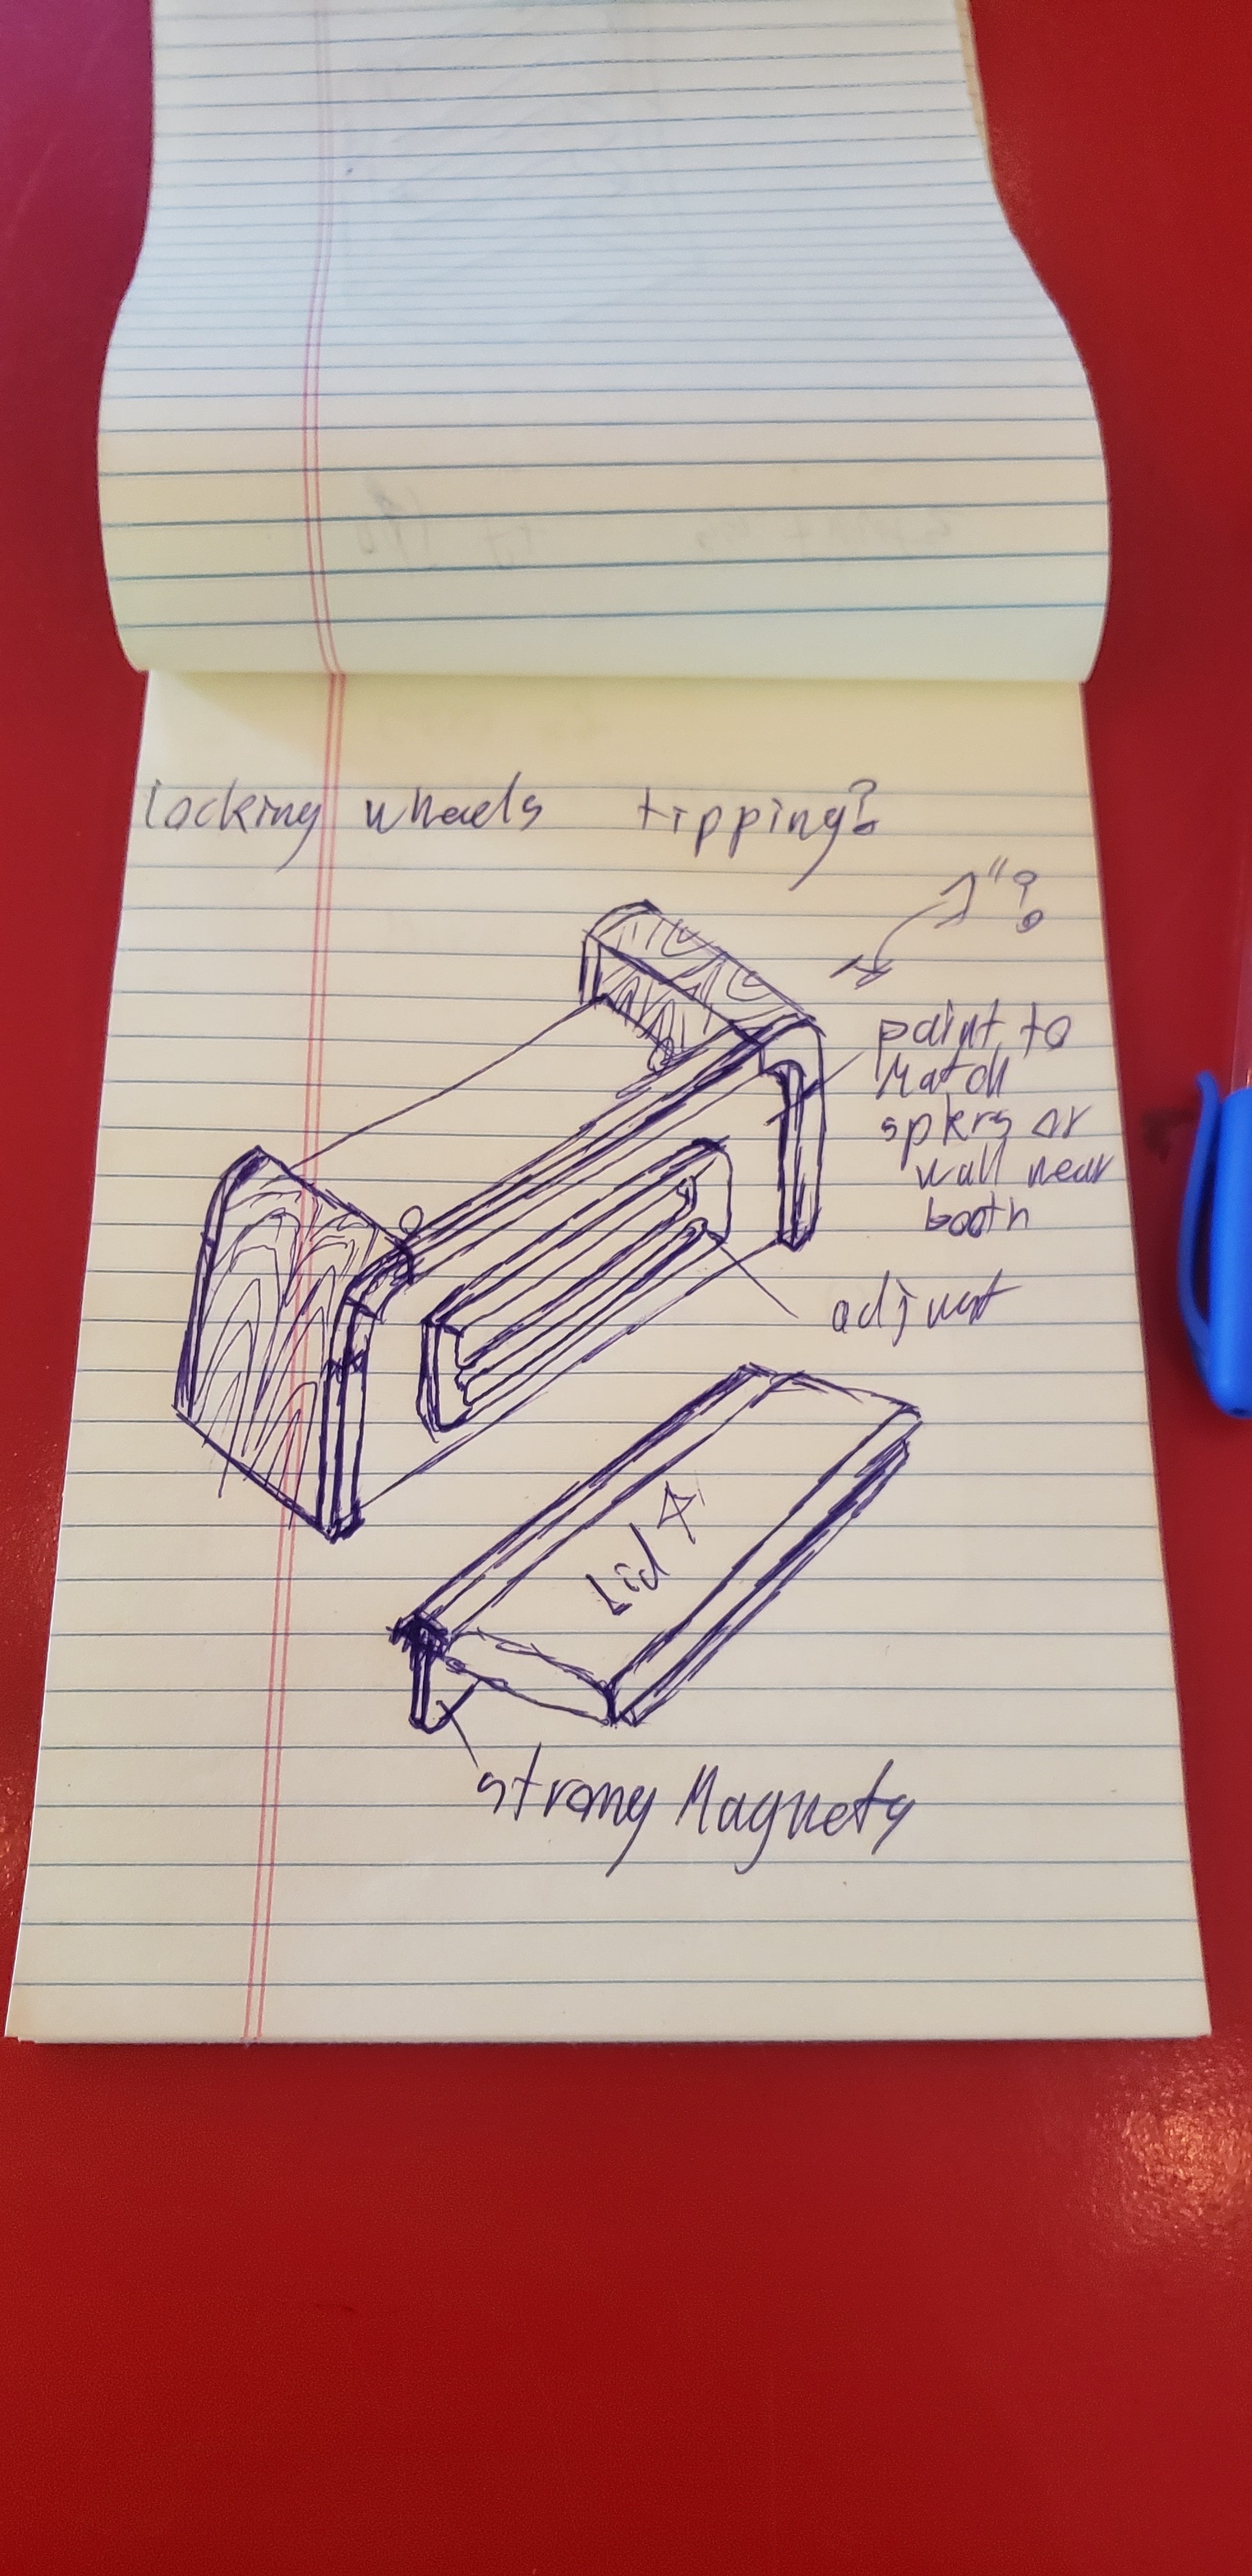 locking wheels tipping?
1"?
paint to
Match
spkrs or
wall near
booth
adjust
Lid
strong Magnets